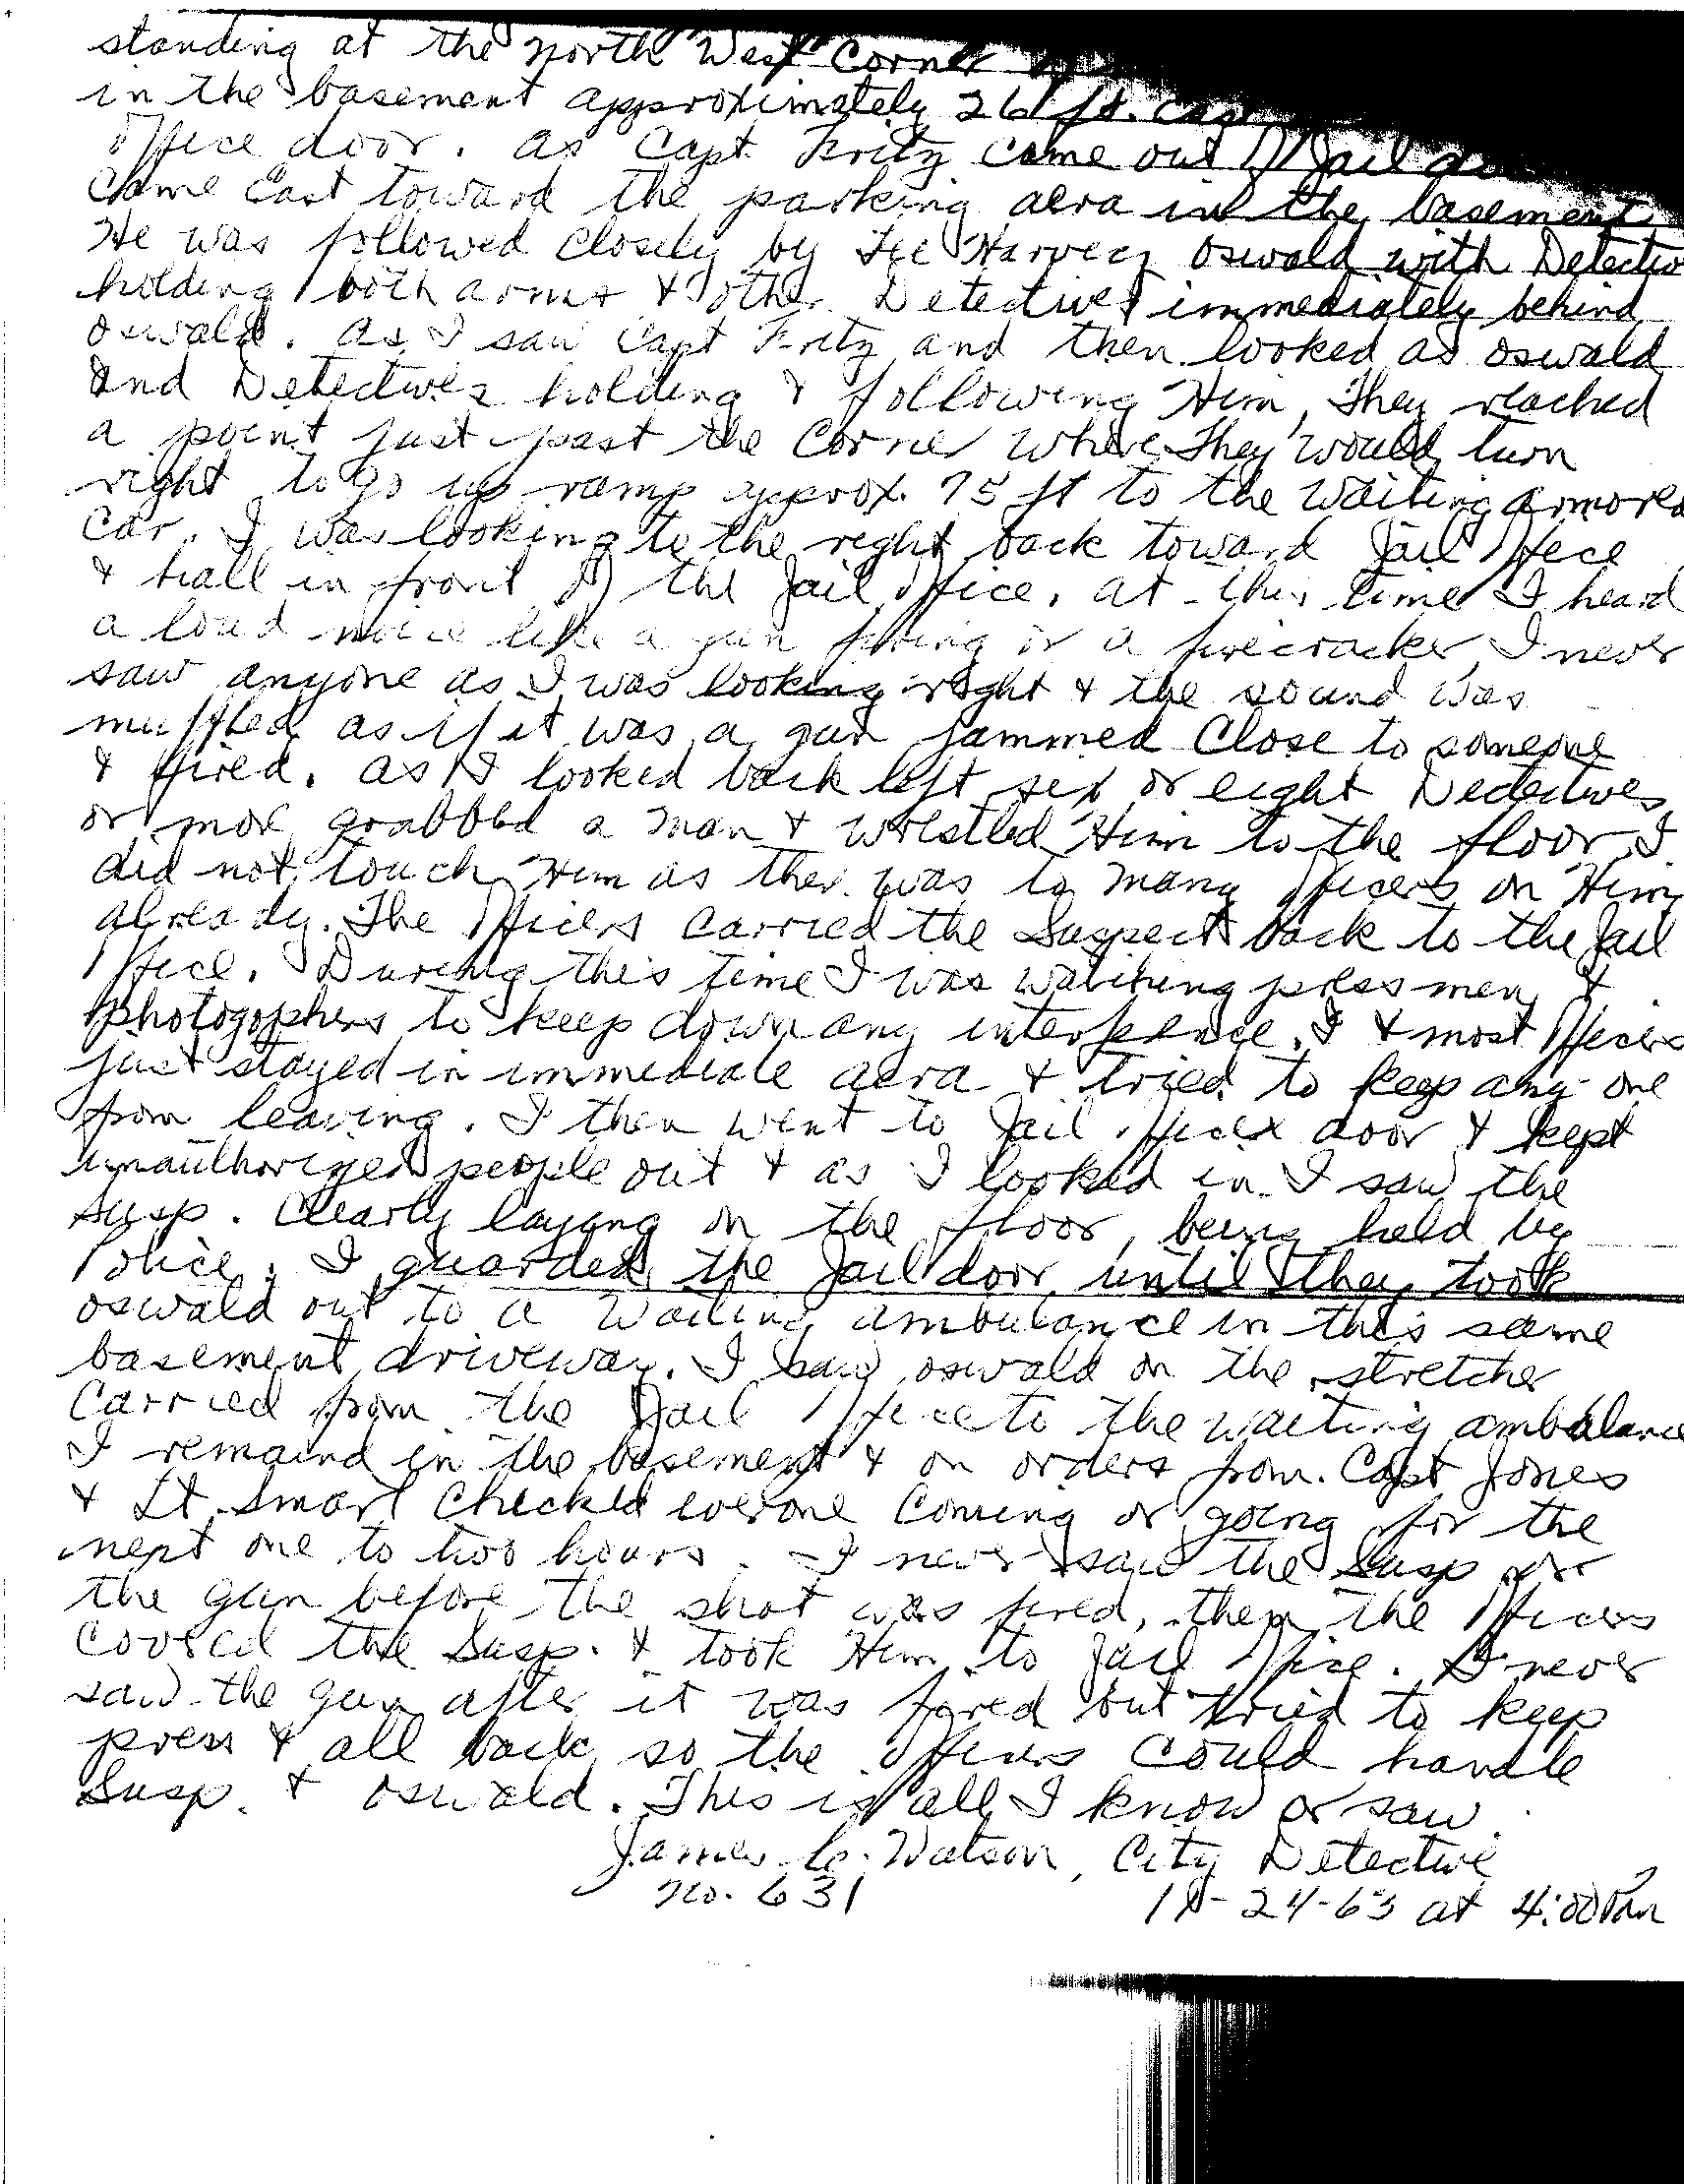 standing at the North West Corner
in the basement approximately 26 ft. east
office door. As Capt. Fritz came out of Jail
Came East toward the parking aera in the basement
He was followed closely by Lee Harvey Oswald with Detectiv
holding both arms & other Detectives immediately behind
Oswald. As I saw Capt Fritz and then looked as Oswald
and Detectives holding & following Him, They reached
a point just past the Corner where They would turn
right to go up ramp approx. 75 ft to the waiting armored
Car. I was looking to the right back toward Jail office
& hall in front of the Jail office. At this time I heard
a loud noice like a gun firing or a firecracker, I never
saw anyone as I was looking right & the sound was
muffled as if it was a gun jammed Close to someone
& fired. As I looked back left six or eight Detectives
or more grabbed a man & wrestled Him to the floor. I
did not touch Him as ther was to many officers on Him
already. The officers carried the Suspect back to the Jail
office. During this time I was watching press men &
photogophers to keep down any interference. I & most officers
just stayed in immediate aera & tried to keep any one
from leaving. I then went to Jail office door & kept
unauthorized people out & as I looked in I saw the
susp. Clearly laying on the floor, being held by
Police. I guarded the Jail door until they took
Oswald out to a waiting ambulance in this same
basement driveway. I saw Oswald on the stretcher
Carried from the Jail office to the waiting ambulance
I remaind in the basement & on orders from Capt Jones
& Lt. Smart Checked everone Coming or going for the
next one to two hours. I never saw the Susp or
the gun before the shot was fired, then the officers
Covered the Susp. & took Him to Jail office. I never
saw the gun after it was fired but tried to keep
press & all back so the officers could handle
Susp. & Oswald. This is all I know or saw.
James C. Watson, City Detective
no. 631 11-24-63 at 4:00 Pm